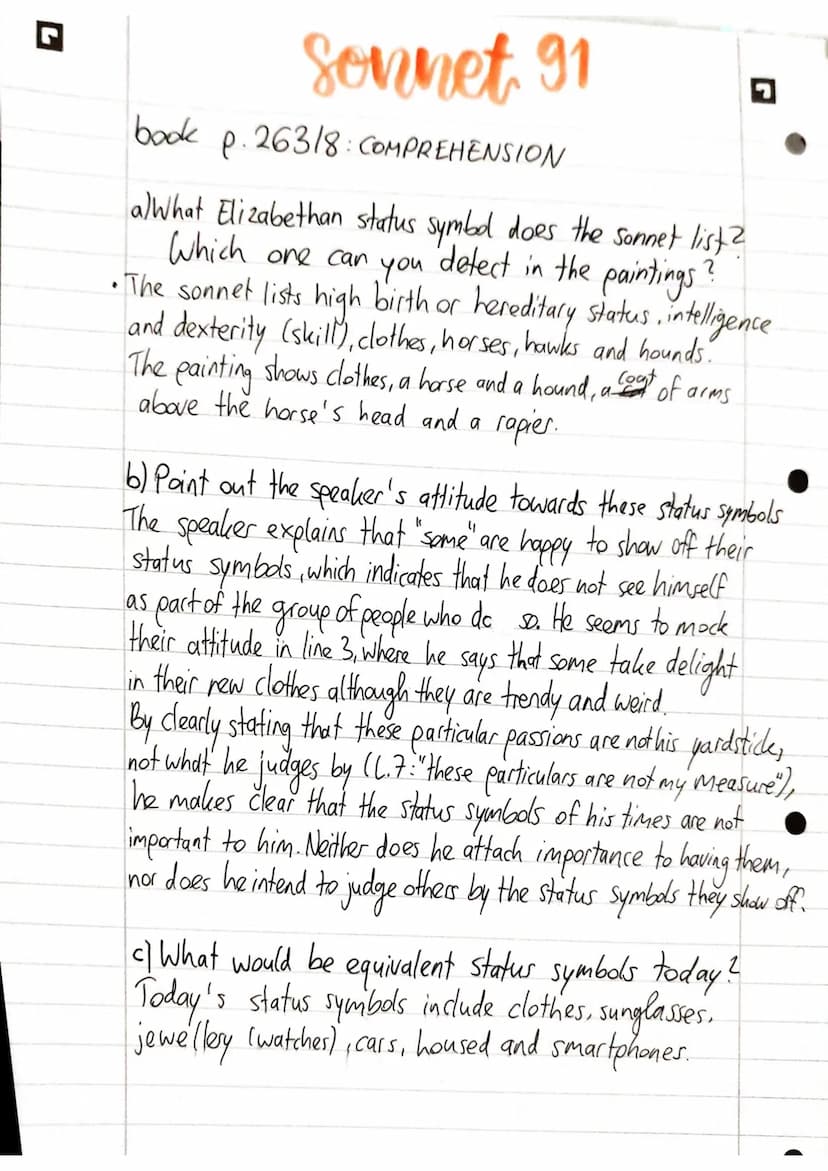 Sonnet 91
book p. 263/8: COMPREHENSION
a) What Elizabethan status symbol does the sonnet list?
Which one can you detect in the paintings?
• The sonnet lists high birth or hereditary status, intelligence
and dexterity (skill), clothes, horses, hawks and hounds.
The painting shows clothes, a horse and a hound, a coat of arms
above the horse's head and a rapier.
b) Point out the speaker's attitude towards these status symbols
The speaker explains that "some" are happy to show off their
status symbols, which indicates that he does not see himself
as part of the group of people who do so. He seems to mock
their attitude in line 3, where he says that some take delight
in their new clothes although they are trendy and weird.
By clearly stating that these particular passions are not his yardstick,
not what he judges by (l. 7: "these particulars are not my measure"),
he makes clear that the status symbols of his times are not
important to him. Neither does he attach importance to having them,
nor does he intend to judge others by the status symbols they show off.
c) What would be equivalent status symbols today?
Today's status symbols include clothes, sunglasses,
jewellery (watches), cars, housed and smartphones.